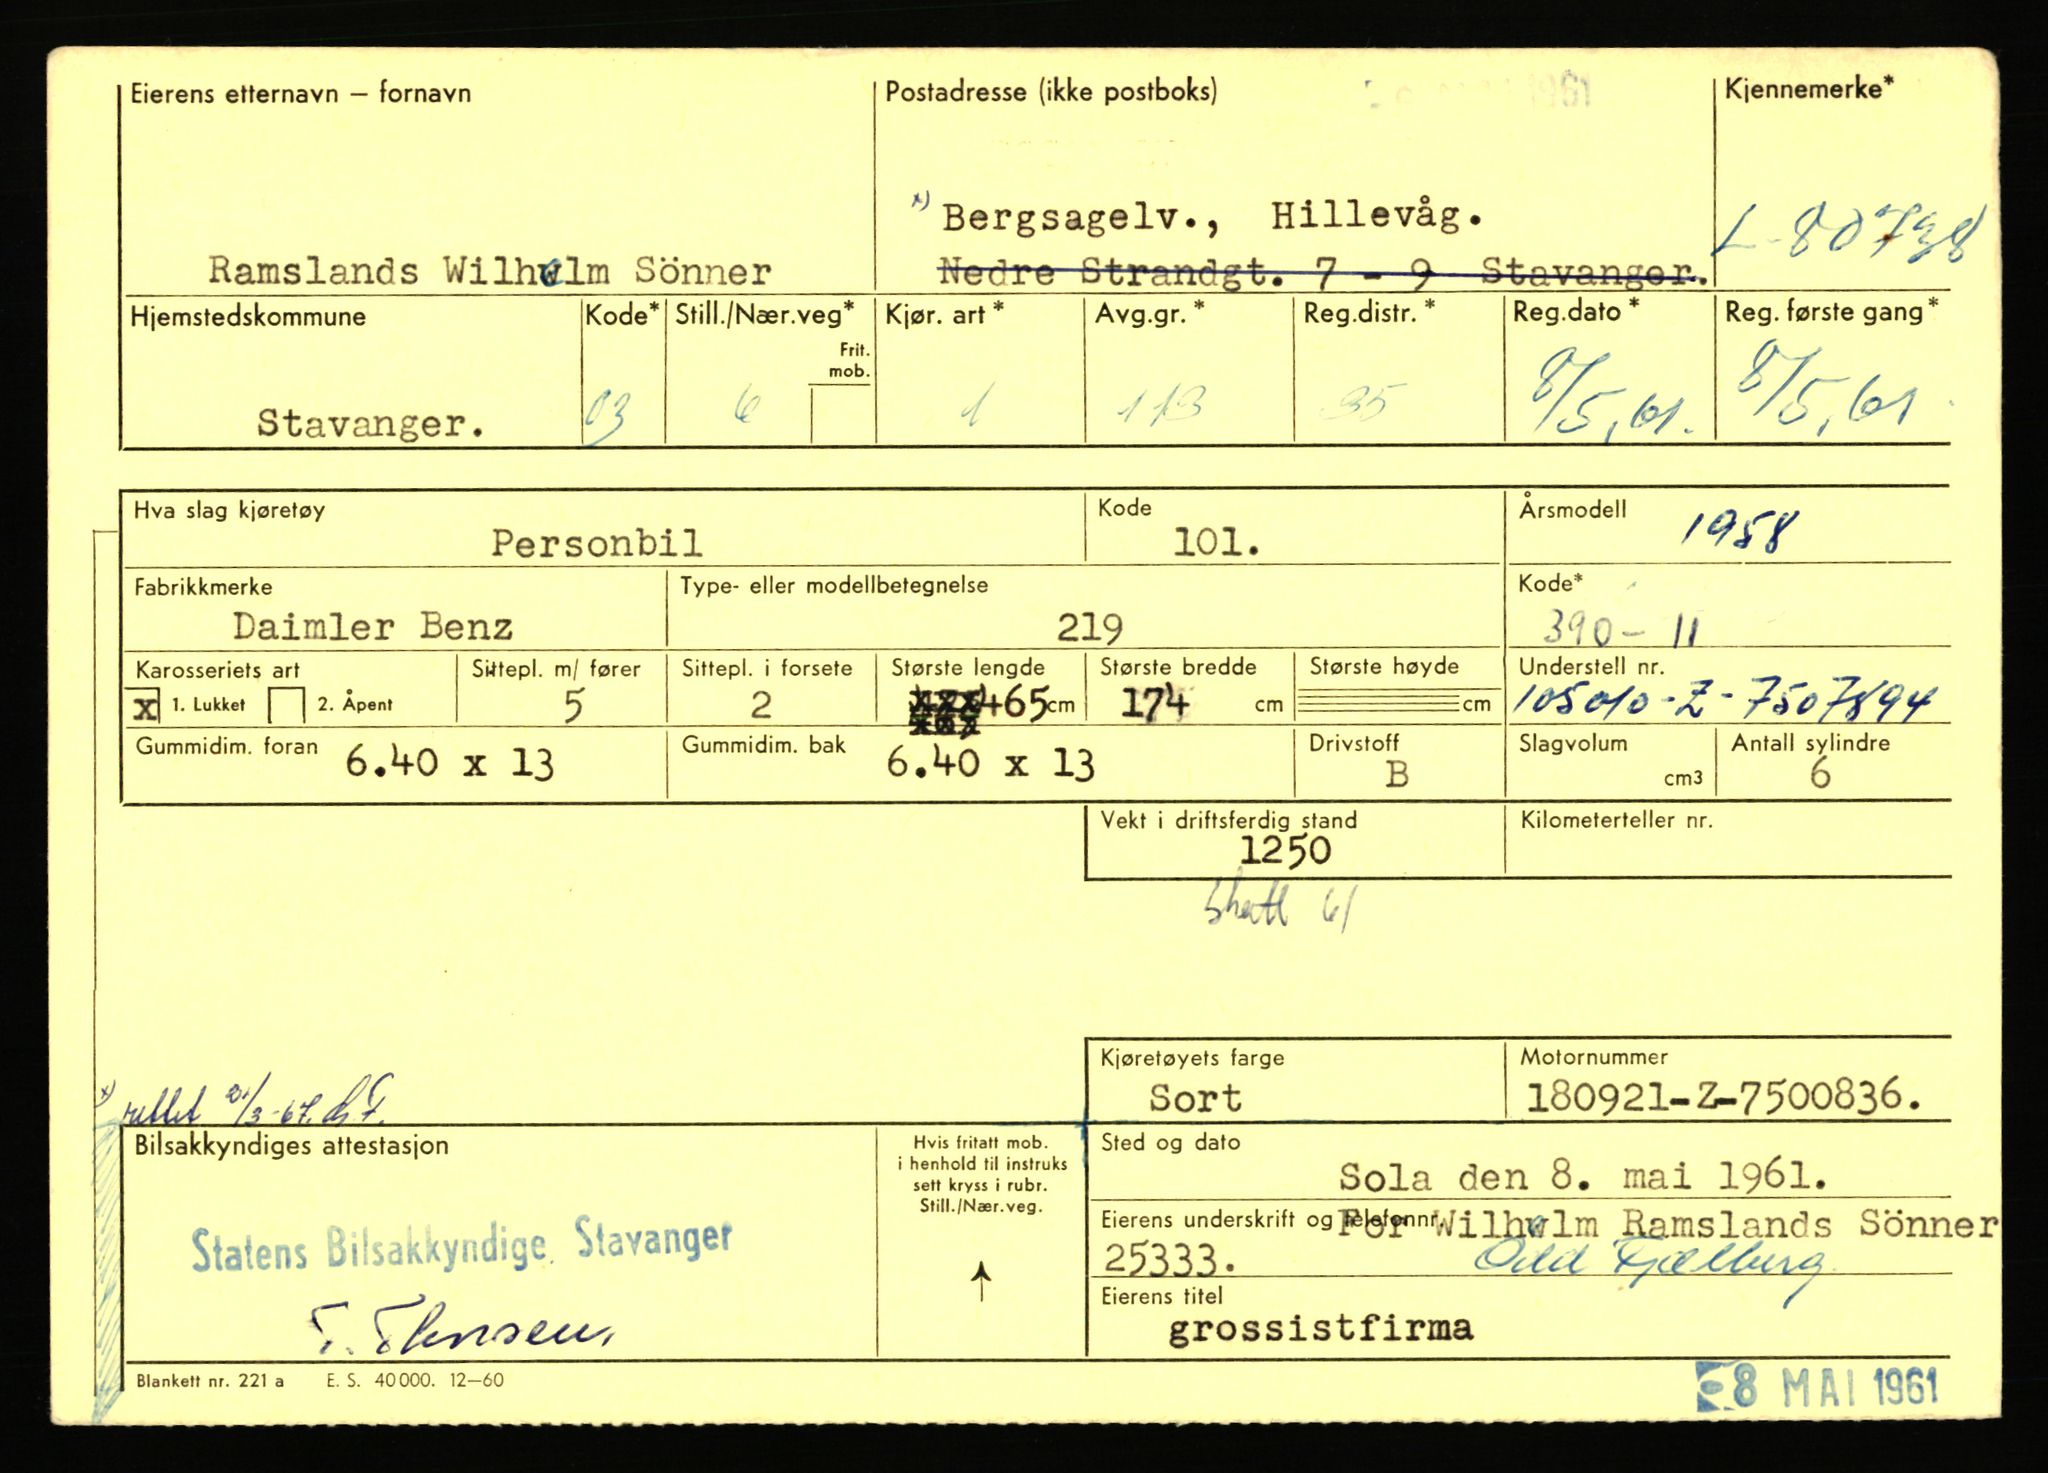 Eierens etternavn – fornavn
Postadresse (ikke postboks)
1961
Kjennemerke*
x) Bergsagelv., Hillevåg.
L-80738
Ramslands Wilhelm Sönner
Nedre Strandgt. 7 - 9 Stavanger.
Hjemstedskommune
Kode*
Still./Nær.veg*
Frit. mob.
Kjør. art*
Avg.gr.*
Reg.distr.*
Reg.dato*
Reg. første gang*
Stavanger.
03
6
1
113
35
8/5, 61.
8/5, 61
Hva slag kjøretøy
Personbil
Kode
101.
Årsmodell
1958
Fabrikkmerke
Daimler Benz
Type- eller modellbetegnelse
219
Kode*
390-11
Karosseriets art
x 1. Lukket 2. Åpent
Sittepl. m/ fører
5
Sittepl. i forsete
2
Største lengde
465 cm
Største bredde
174 cm
Største høyde
cm
Understell nr.
105010-Z-7507894
Gummidim. foran
6.40 x 13
Gummidim. bak
6.40 x 13
Drivstoff
B
Slagvolum
cm3
Antall sylindre
6
Vekt i driftsferdig stand
1250
Kilometerteller nr.
61
Kjøretøyets farge
Sort
Motornummer
180921-Z-7500836.
x) rettet /3-67.
Bilsakkyndiges attestasjon
Hvis fritatt mob.
i henhold til instruks
sett kryss i rubr.
Still./Nær.veg.
Sted og dato
Sola den 8. mai 1961.
Eierens underskrift og telefonnr.
For Wilhelm Ramslands Sönner
25333.
Odd Fjelberg
Statens Bilsakkyndige. Stavanger
Eierens titel
grossistfirma
Blankett nr. 221 a E. S. 40 000. 12–60
8 MAI 1961